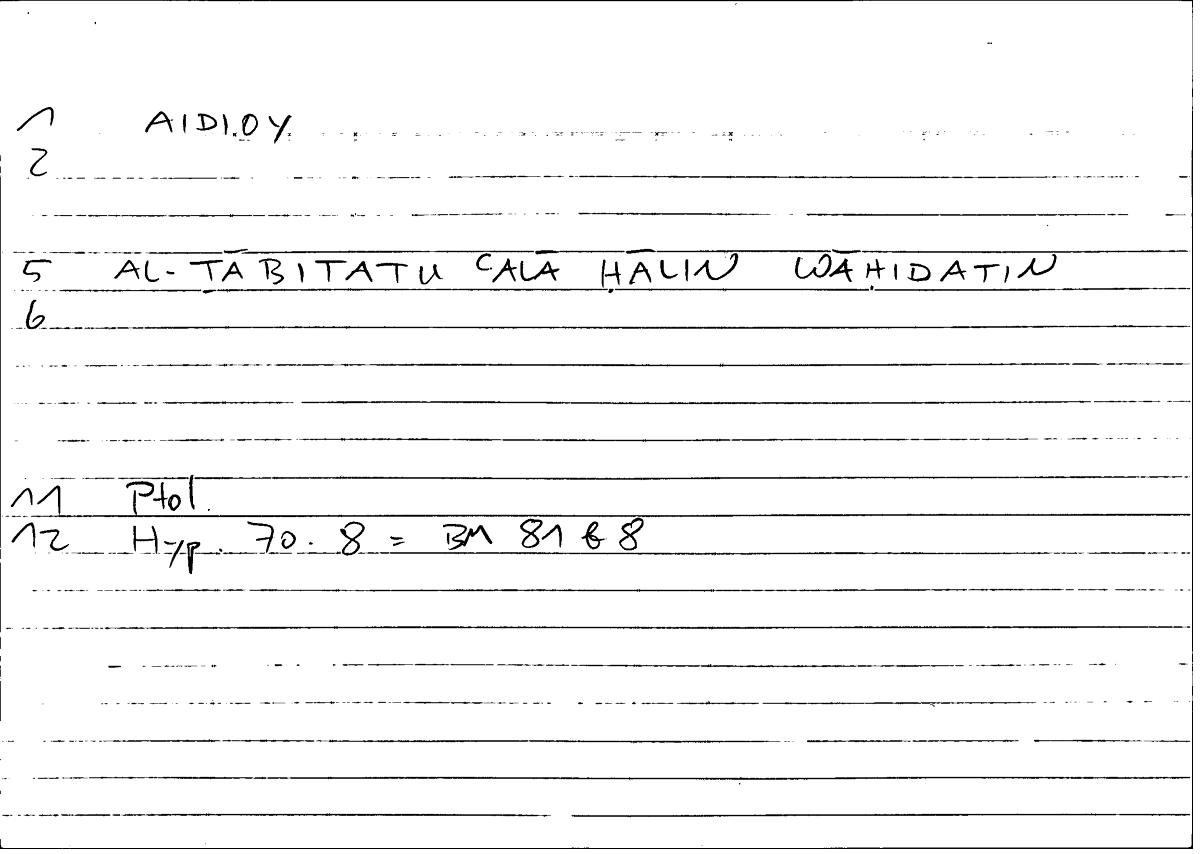 1 AIDI.OY
2
5 AL-ṮĀBITATU ʿALĀ ḤĀLIN WĀḤIDATIN
6
11 Ptol.
12 Hyp. 70.8 = BM 81 b 8